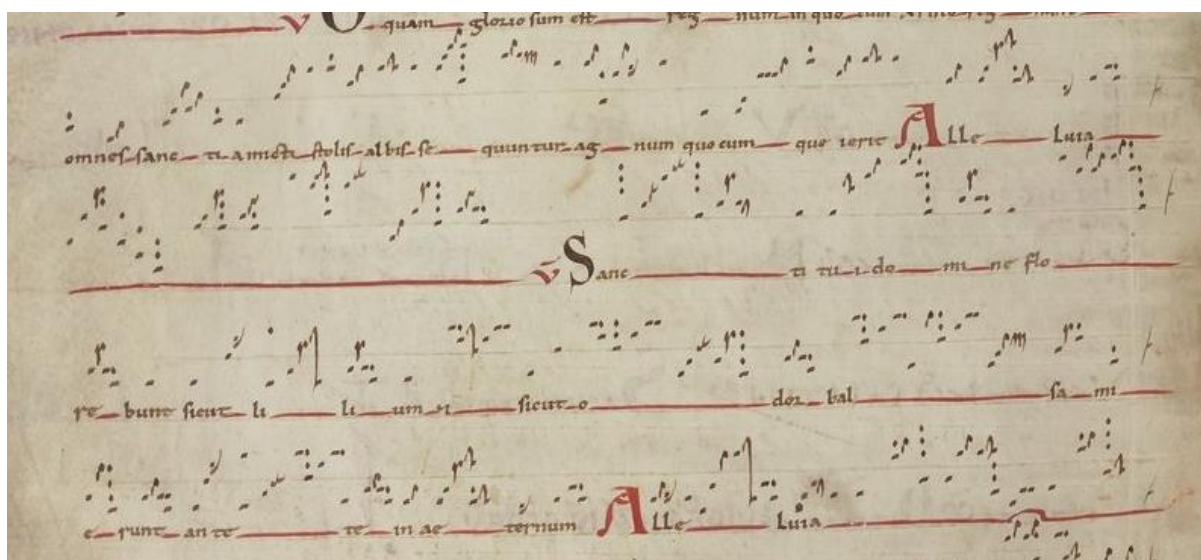 V O quam gloriosum est reg num in quo cum
omnes sanc ti amicti stolis albis se quuntur ag num quocum que ierit Alle luia
V Sanc ti tu i do mi ne flo
re bunt sicut li li um sicut o dor bal sa mi
e runt an te te in ae ternum Alle luia